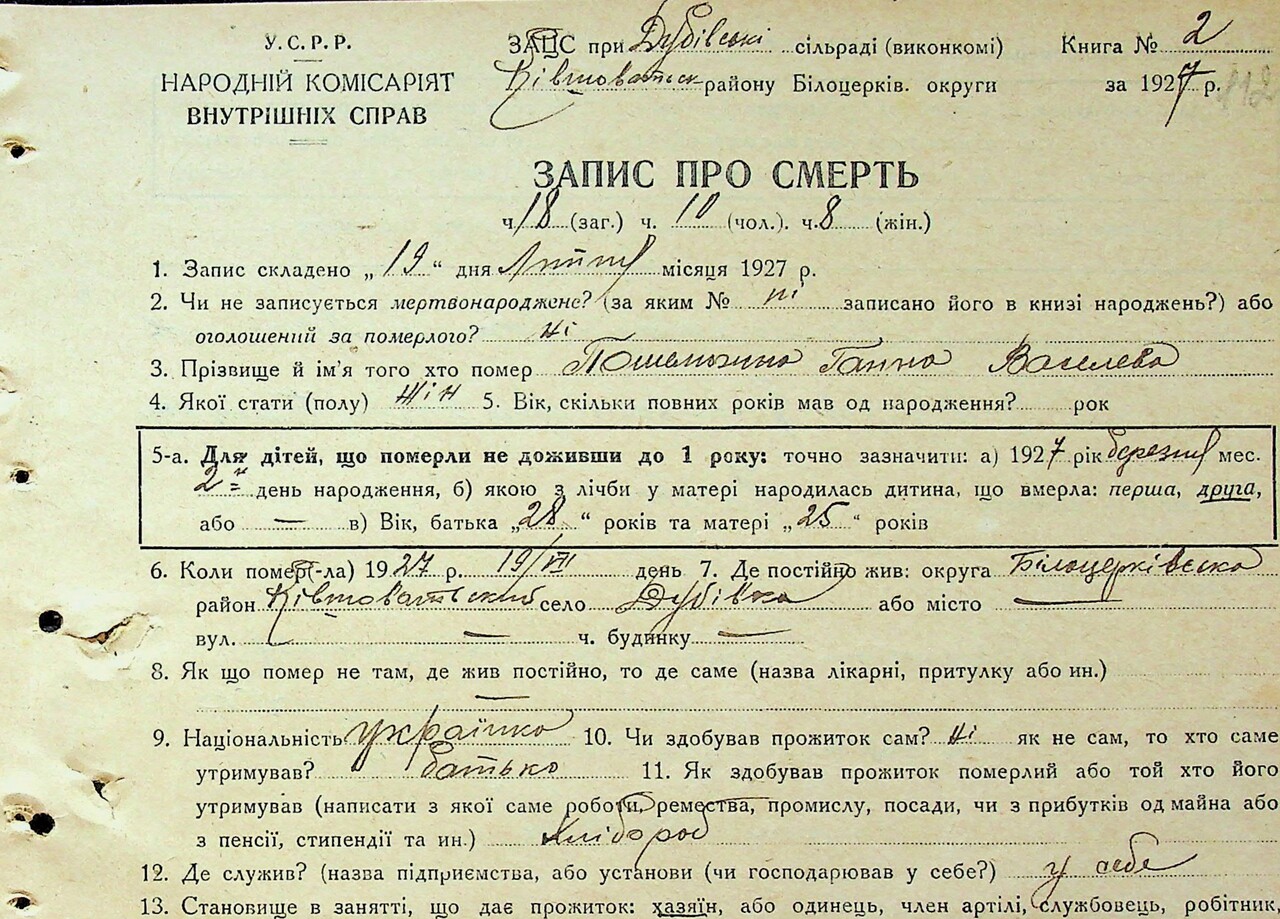 У.С.Р.Р.
НАРОДНІЙ КОМІСАРІЯТ
ВНУТРІШНІХ СПРАВ
ЗАЦС при Дубівські сільраді (виконкомі) Книга № 2
району Білоцерків. округи за 1927 р.
ЗАПИС ПРО СМЕРТЬ
ч. 18 (заг.) ч. 10 (чол.). ч. 8 (жін.)
1. Запис складено „19“ дня місяця 1927 р.
2. Чи не записується мертвонароджене? (за яким № ні записано його в книзі народжень?) або
оголошений за померлого? Ні
3. Прізвище й ім'я того хто помер Ганна Василева
4. Якої стати (полу) жін 5. Вік, скільки повних років мав од народження? рок
5-а. Для дітей, що померли не доживши до 1 року: точно зазначити: а) 1927 рік березня мес.
2 день народження, б) якою з лічби у матері народилась дитина, що вмерла: перша, друга,
або — в) Вік, батька „28“ років та матері „25“ років
6. Коли помер(-ла) 1927 р. 19/VII день 7. Де постійно жив: округа Білоцерківська
район Ківшоватський село Дубівка або місто —
вул. — ч. будинку —
8. Як що помер не там, де жив постійно, то де саме (назва лікарні, притулку або ин.)
—
9. Національність українка 10. Чи здобував прожиток сам? Ні як не сам, то хто саме
утримував? батько 11. Як здобував прожиток померлий або той хто його
утримував (написати з якої саме роботи, ремества, промислу, посади, чи з прибутків од майна або
з пенсії, стипендії та ин.) Хлібороб
12. Де служив? (назва підприємства, або установи (чи господарював у себе?) у себе
13. Становище в занятті, що дає прожиток: хазяїн, або одинець, член артілі, службовець, робітник,